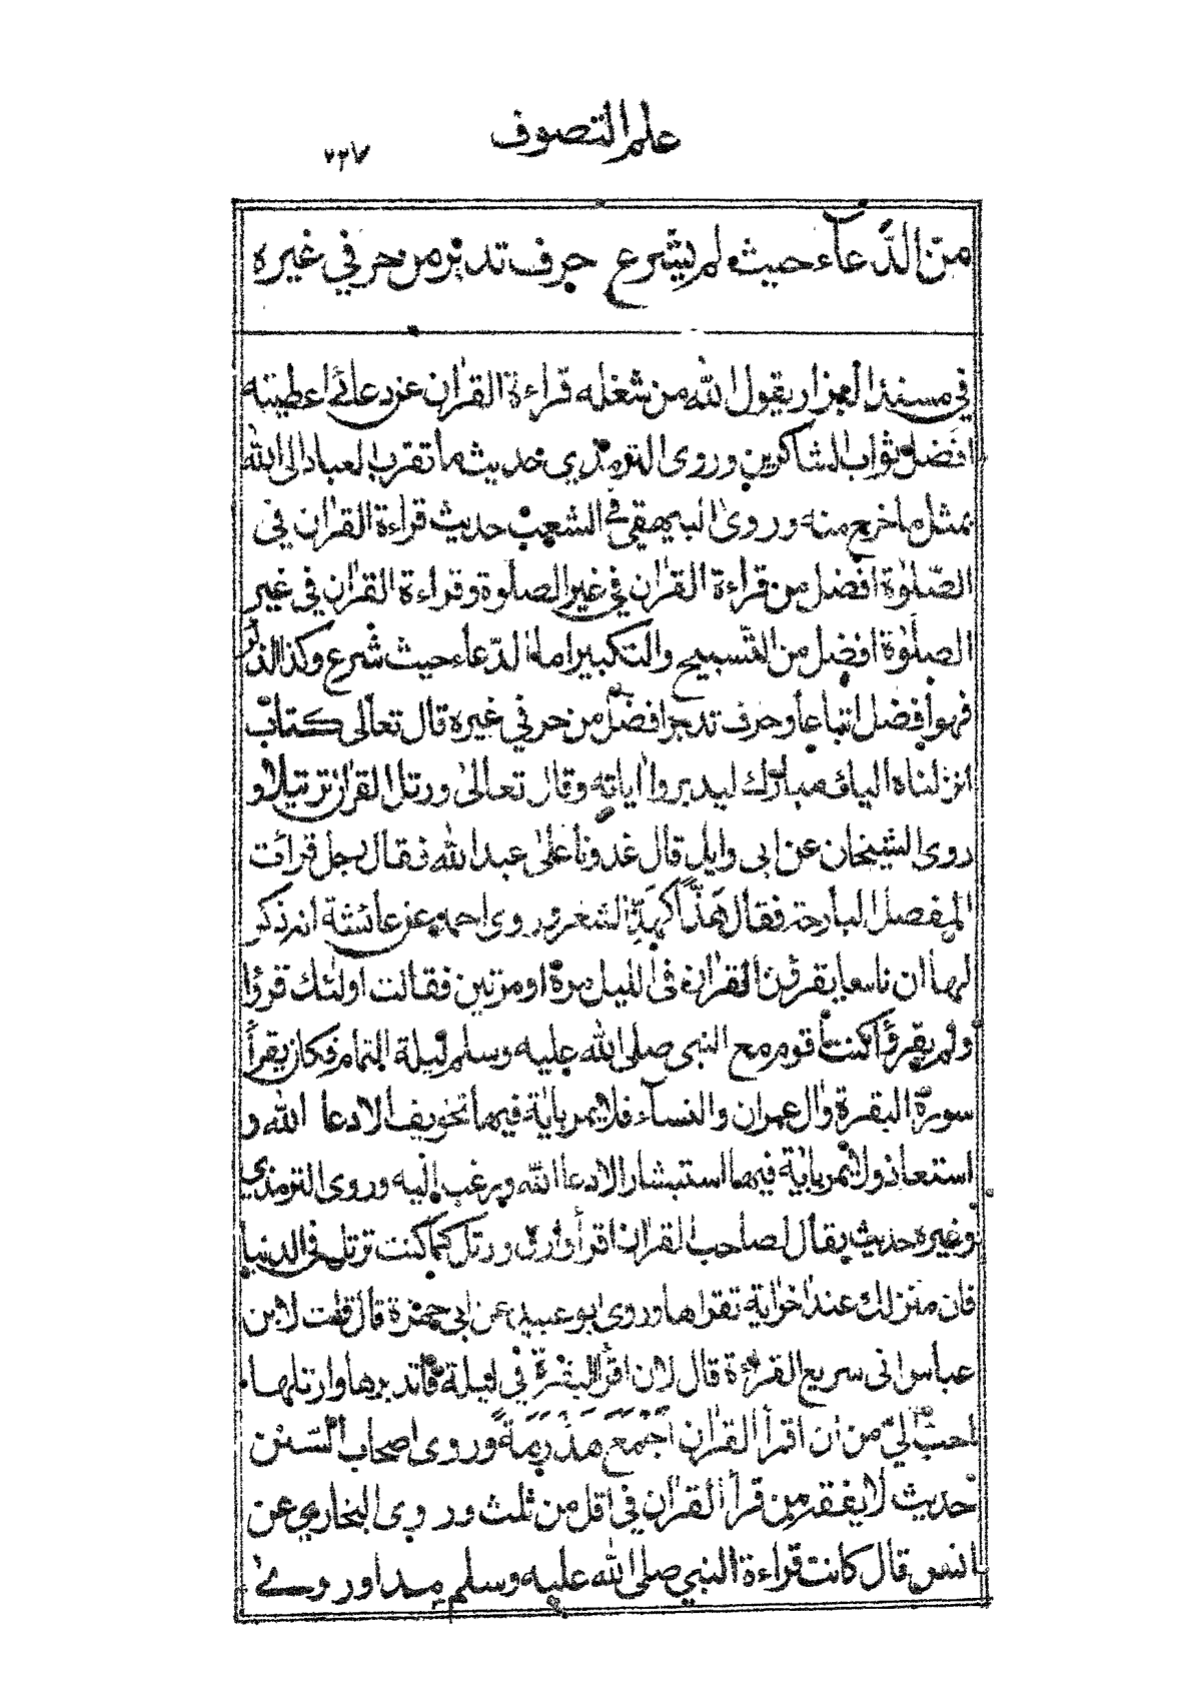 علم التصوف
٢٣٧
من الدّعآء حيث لم يشرع حرف تدبر من حر في غيره
في مسند البزار يقول الله من شغله قراءة القران عن دعائے اعطيته
افضل ثواب الشاكرين وروى الترمذي حديث ما تقرب العباد الى الله
بمثل ما خرج منه وروى البيهقي في الشعب حديث قراءة القران في
الصّلوٰة افضل من قراءة القران في غير الصلوة وقراءة القران في غير
الصلوٰة افضل من التّسبيح والتكبير اما الدّعاء حيث شرع وكذا الذكر
فهو افضل اتباعا وحرف تدبر افضل من حر في غيره قال تعالى كتاب
انزلناه اليك مبارك ليدبروا اياته وقال تعالىٰ ورتل القران ترتيلا و
روى الشيخان عن ابى وايل قال غدونا علىٰ عبد الله فقال رجل قرأت
المفصل البارحة فقال هَذًّا كهَذِّ الشعر وروى احمد عن عائشة انه ذكر
لها ان ناسا يقرؤن القران فى الليل مرة او مرتين فقالت اولئك قرؤا
ولم يقرؤا كنت اقوم مع النبى صلى الله عليه وسلم ليلة التمام فكان يقرأ
سورة البقرة وال عمران والنسآء فلا يمر باية فيها تخويف الا دعا الله و
استعاذ ولا يمر باية فيها استبشار الا دعا الله ورغب اليه وروى الترمذي
وغيره حديث يقال لصاحب القران اقرأ وارق ورتل كما كنت ترتل فى الدنيا
فان منزلك عند اخر اية تقراها وروى ابو عبيد عن ابى حمزة قال قلت لابن
عباس انى سريع القراءة قال لان اقرأ البقرة في ليلة فاتدبرها وارتلها
احب اليّ من ان اقرأ القران اَجْمَع هَذْرَمَةً وروى اصحاب السّنن
حديث لا يفقه من قرأ القران في اقل من ثلث وروى البخاري عن
انس قال كانت قراءة النبي صلى الله عليه وسلم مدا وروے